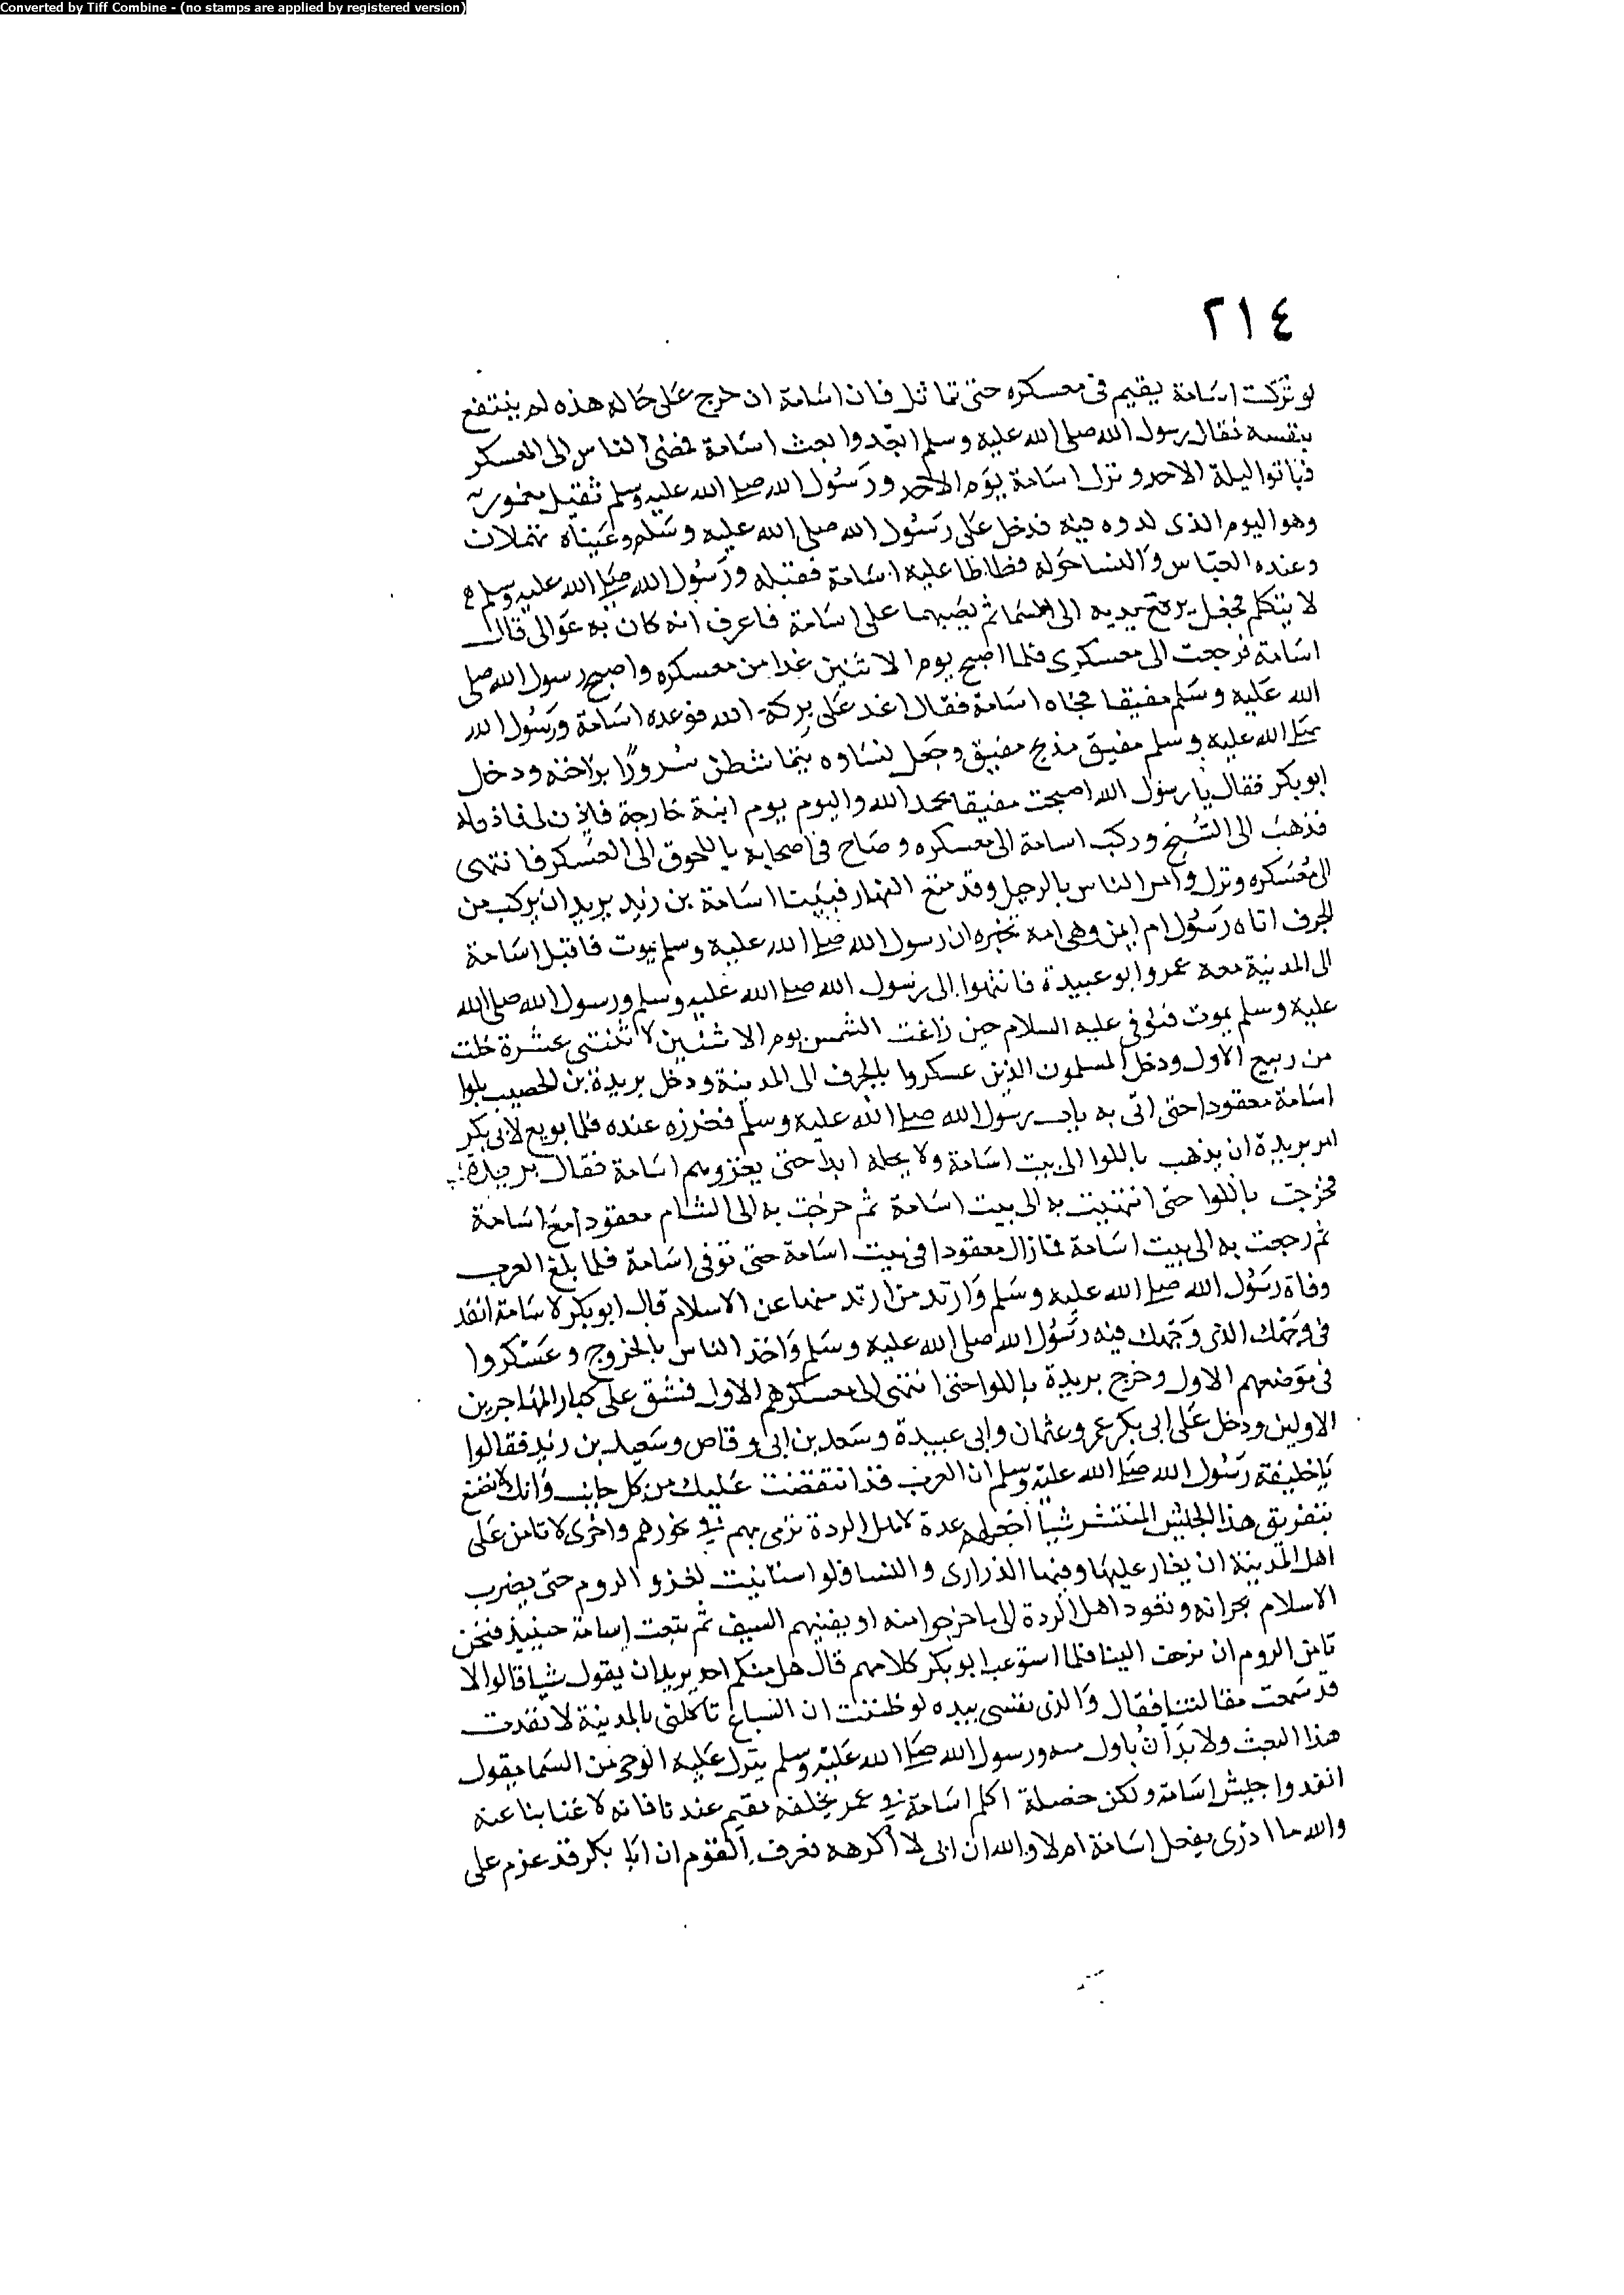 Converted by Tiff Combine - (no stamps are applied by registered version)
٢١٤
لو تركت اسامة يقيم فى معسكره حتى تماثل فان اسامة ان خرج على حاله هذه لم ينتفع
بنفسه فقال رسول الله صلى الله عليه وسلم انفذوا بعث اسامة فمضى الناس الى المعسكر
فباتوا ليلة الاحد ونزل اسامة يوم الاحد ورسول الله صلى الله عليه وسلم ثقيل مغمور
وهو اليوم الذى لدوه فيه فدخل على رسول الله صلى الله عليه وسلم وعيناه تهملان
وعنده العباس والنسا حوله فطاطا عليه اسامة فقبله ورسول الله صلى الله عليه وسلم
لا يتكلم فجعل يرفع يديه الى السما ثم يصبهما على اسامة فاعرف انه كان يدعوالى قال
اسامة فرجعت الى معسكرى فلما اصبح يوم الاثنين غدا من معسكره واصبح رسول الله صلى
الله عليه وسلم مفيقا فجاه اسامة فقال اغد على بركة الله فودعه اسامة ورسول الله
صلى الله عليه وسلم مفيق مريح مفيق وجعل نساوه يتماشطن سرورا براحته ودخل
ابو بكر فقال يا رسول الله اصبحت مفيقا بحمد الله واليوم يوم ابنة خارجة فايذن لى فاذن له
فذهب الى السنح وركب اسامة الى معسكره وصاح فى اصحابه باللحوق الى العسكر فانتهى
الى معسكره ونزل وامر الناس بالرحيل وقد متع النهار فبينا اسامة بن زيد يريد ان يركب من
الجرف اتاه رسول ام ايمن وهى امه تخبره ان رسول الله صلى الله عليه وسلم يموت فاقبل اسامة
الى المدينة معه عمر وابو عبيدة فانتهوا الى رسول الله صلى الله عليه وسلم ورسول الله صلى الله
عليه وسلم يموت فتوفى عليه السلام حين زاغت الشمس يوم الاثنين لاثنتى عشرة خلت
من ربيع الاول ودخل المسلمون الذين عسكروا بالجرف الى المدينة ودخل بريدة بن الحصيب بلوا
اسامة معقودا حتى اتى به باب رسول الله صلى الله عليه وسلم فغرزه عنده فلما بويع لابى بكر
امر بريدة ان يذهب باللوا الى بيت اسامة ولا يحله ابدا حتى يغزوهم اسامة فقال بريدة
فخرجت باللوا حتى انتهيت به الى بيت اسامة ثم خرجت به الى الشام معقودا مع اسامة
ثم رجعت به الى بيت اسامة فمازال معقودا فى بيت اسامة حتى توفى اسامة فلما بلغ العرب
وفاة رسول الله صلى الله عليه وسلم وارتد من ارتد منها عن الاسلام قال ابو بكر لاسامة انفذ
فى وجهك الذى وجهك فيه رسول الله صلى الله عليه وسلم واخذ الناس بالخروج وعسكروا
فى موضعهم الاول وخرج بريدة باللوا حتى انتهى الى معسكرهم الاول فشق على كبار المهاجرين
الاولين ودخل على ابى بكر عمر وعثمان وابى عبيدة وسعد بن ابى وقاص وسعيد بن زيد فقالوا
يا خليفة رسول الله صلى الله عليه وسلم ان العرب قد انتقضت عليك من كل جانب وانك لا تصنع
بتفريق هذا الجيش المنتشر شيا اجعلهم عدة لاهل الردة ترمى بهم فى نحورهم واخرى لا تامن على
اهل المدينة ان يغار عليها وفيها الذرارى والنسا فلو استانيت لغزو الروم حتى يضرب
الاسلام بجرانه وتعود اهل الردة الى ما خرجوا منه او يفنيهم السيف ثم تبعث اسامة حينيذ فنحن
نامن الروم ان تزحف الينا فلما استوعب ابو بكر كلامهم قال هل منكم احد يريد ان يقول شيا قالوا لا
قد سمعت مقالتنا فقال والذى نفسى بيده لو ظننت ان السباع تاكلنى بالمدينة لانفذت
هذا البعث ولا بد ان باول منه ورسول الله صلى الله عليه وسلم ينزل عليه الوحى من السما يقول
انفذوا جيش اسامة ولكن خصلة اكلم اسامة فى عمر يخلفه يقيم عندنا فانه لا غنا بنا عنه
والله ما ادرى يفعل اسامة ام لا والله ان ابى لا اكرهه فعرف القوم ان ابا بكر قد عزم على